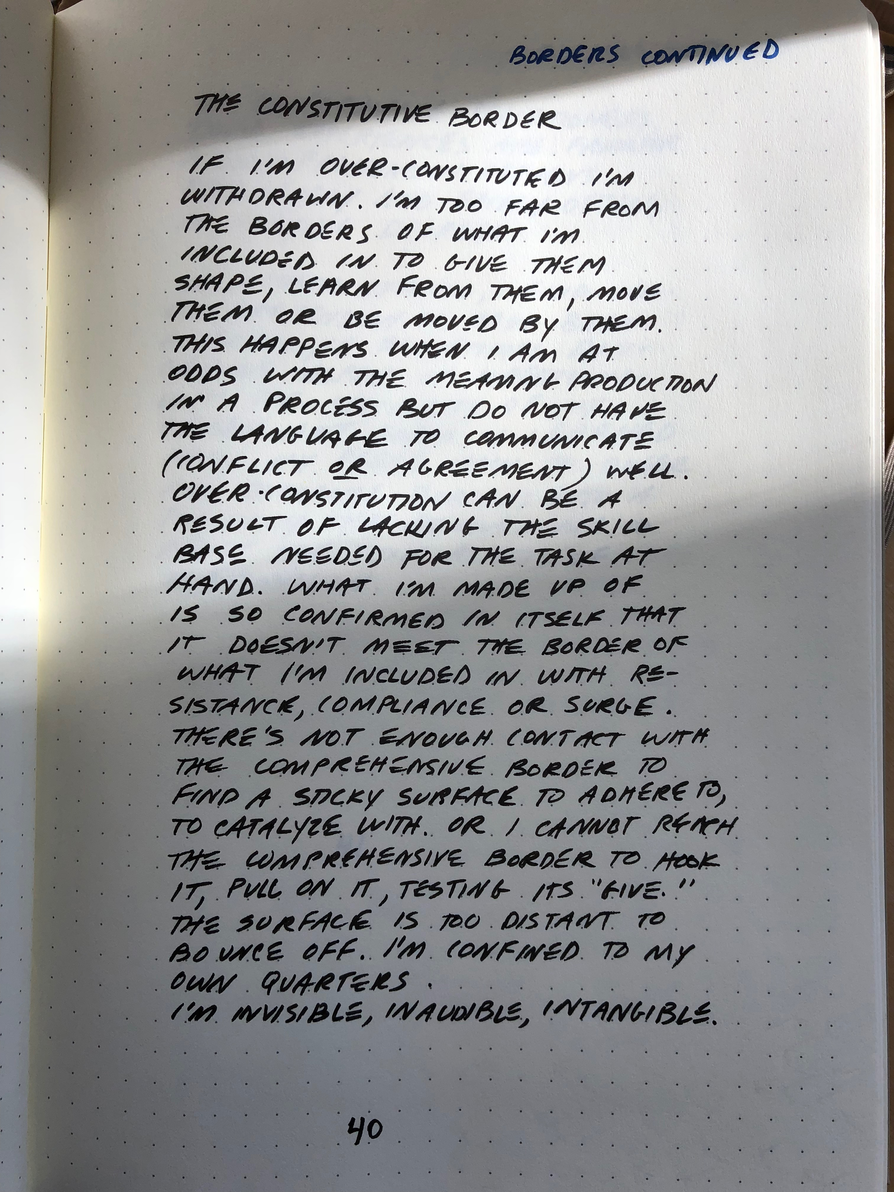 BORDERS CONTINUED
THE CONSTITUTIVE BORDER
IF I'M OVER-CONSTITUTED I'M
WITHDRAWN. I'M TOO FAR FROM
THE BORDERS OF WHAT I'M
INCLUDED IN TO GIVE THEM
SHAPE, LEARN FROM THEM, MOVE
THEM OR BE MOVED BY THEM.
THIS HAPPENS WHEN I AM AT
ODDS WITH THE MEANING PRODUCTION
IN A PROCESS BUT DO NOT HAVE
THE LANGUAGE TO COMMUNICATE
(CONFLICT OR AGREEMENT) WELL.
OVER-CONSTITUTION CAN BE A
RESULT OF LACKING THE SKILL
BASE NEEDED FOR THE TASK AT
HAND. WHAT I'M MADE UP OF
IS SO CONFIRMED IN ITSELF THAT
IT DOESN'T MEET THE BORDER OF
WHAT I'M INCLUDED IN WITH RE-
SISTANCE, COMPLIANCE OR SURGE.
THERE'S NOT ENOUGH CONTACT WITH
THE COMPREHENSIVE BORDER TO
FIND A STICKY SURFACE TO ADHERE TO,
TO CATALYZE WITH. OR I CANNOT REACH
THE COMPREHENSIVE BORDER TO HOOK
IT, PULL ON IT, TESTING ITS "GIVE."
THE SURFACE IS TOO DISTANT TO
BOUNCE OFF. I'M CONFINED TO MY
OWN QUARTERS.
I'M INVISIBLE, INAUDIBLE, INTANGIBLE.
40